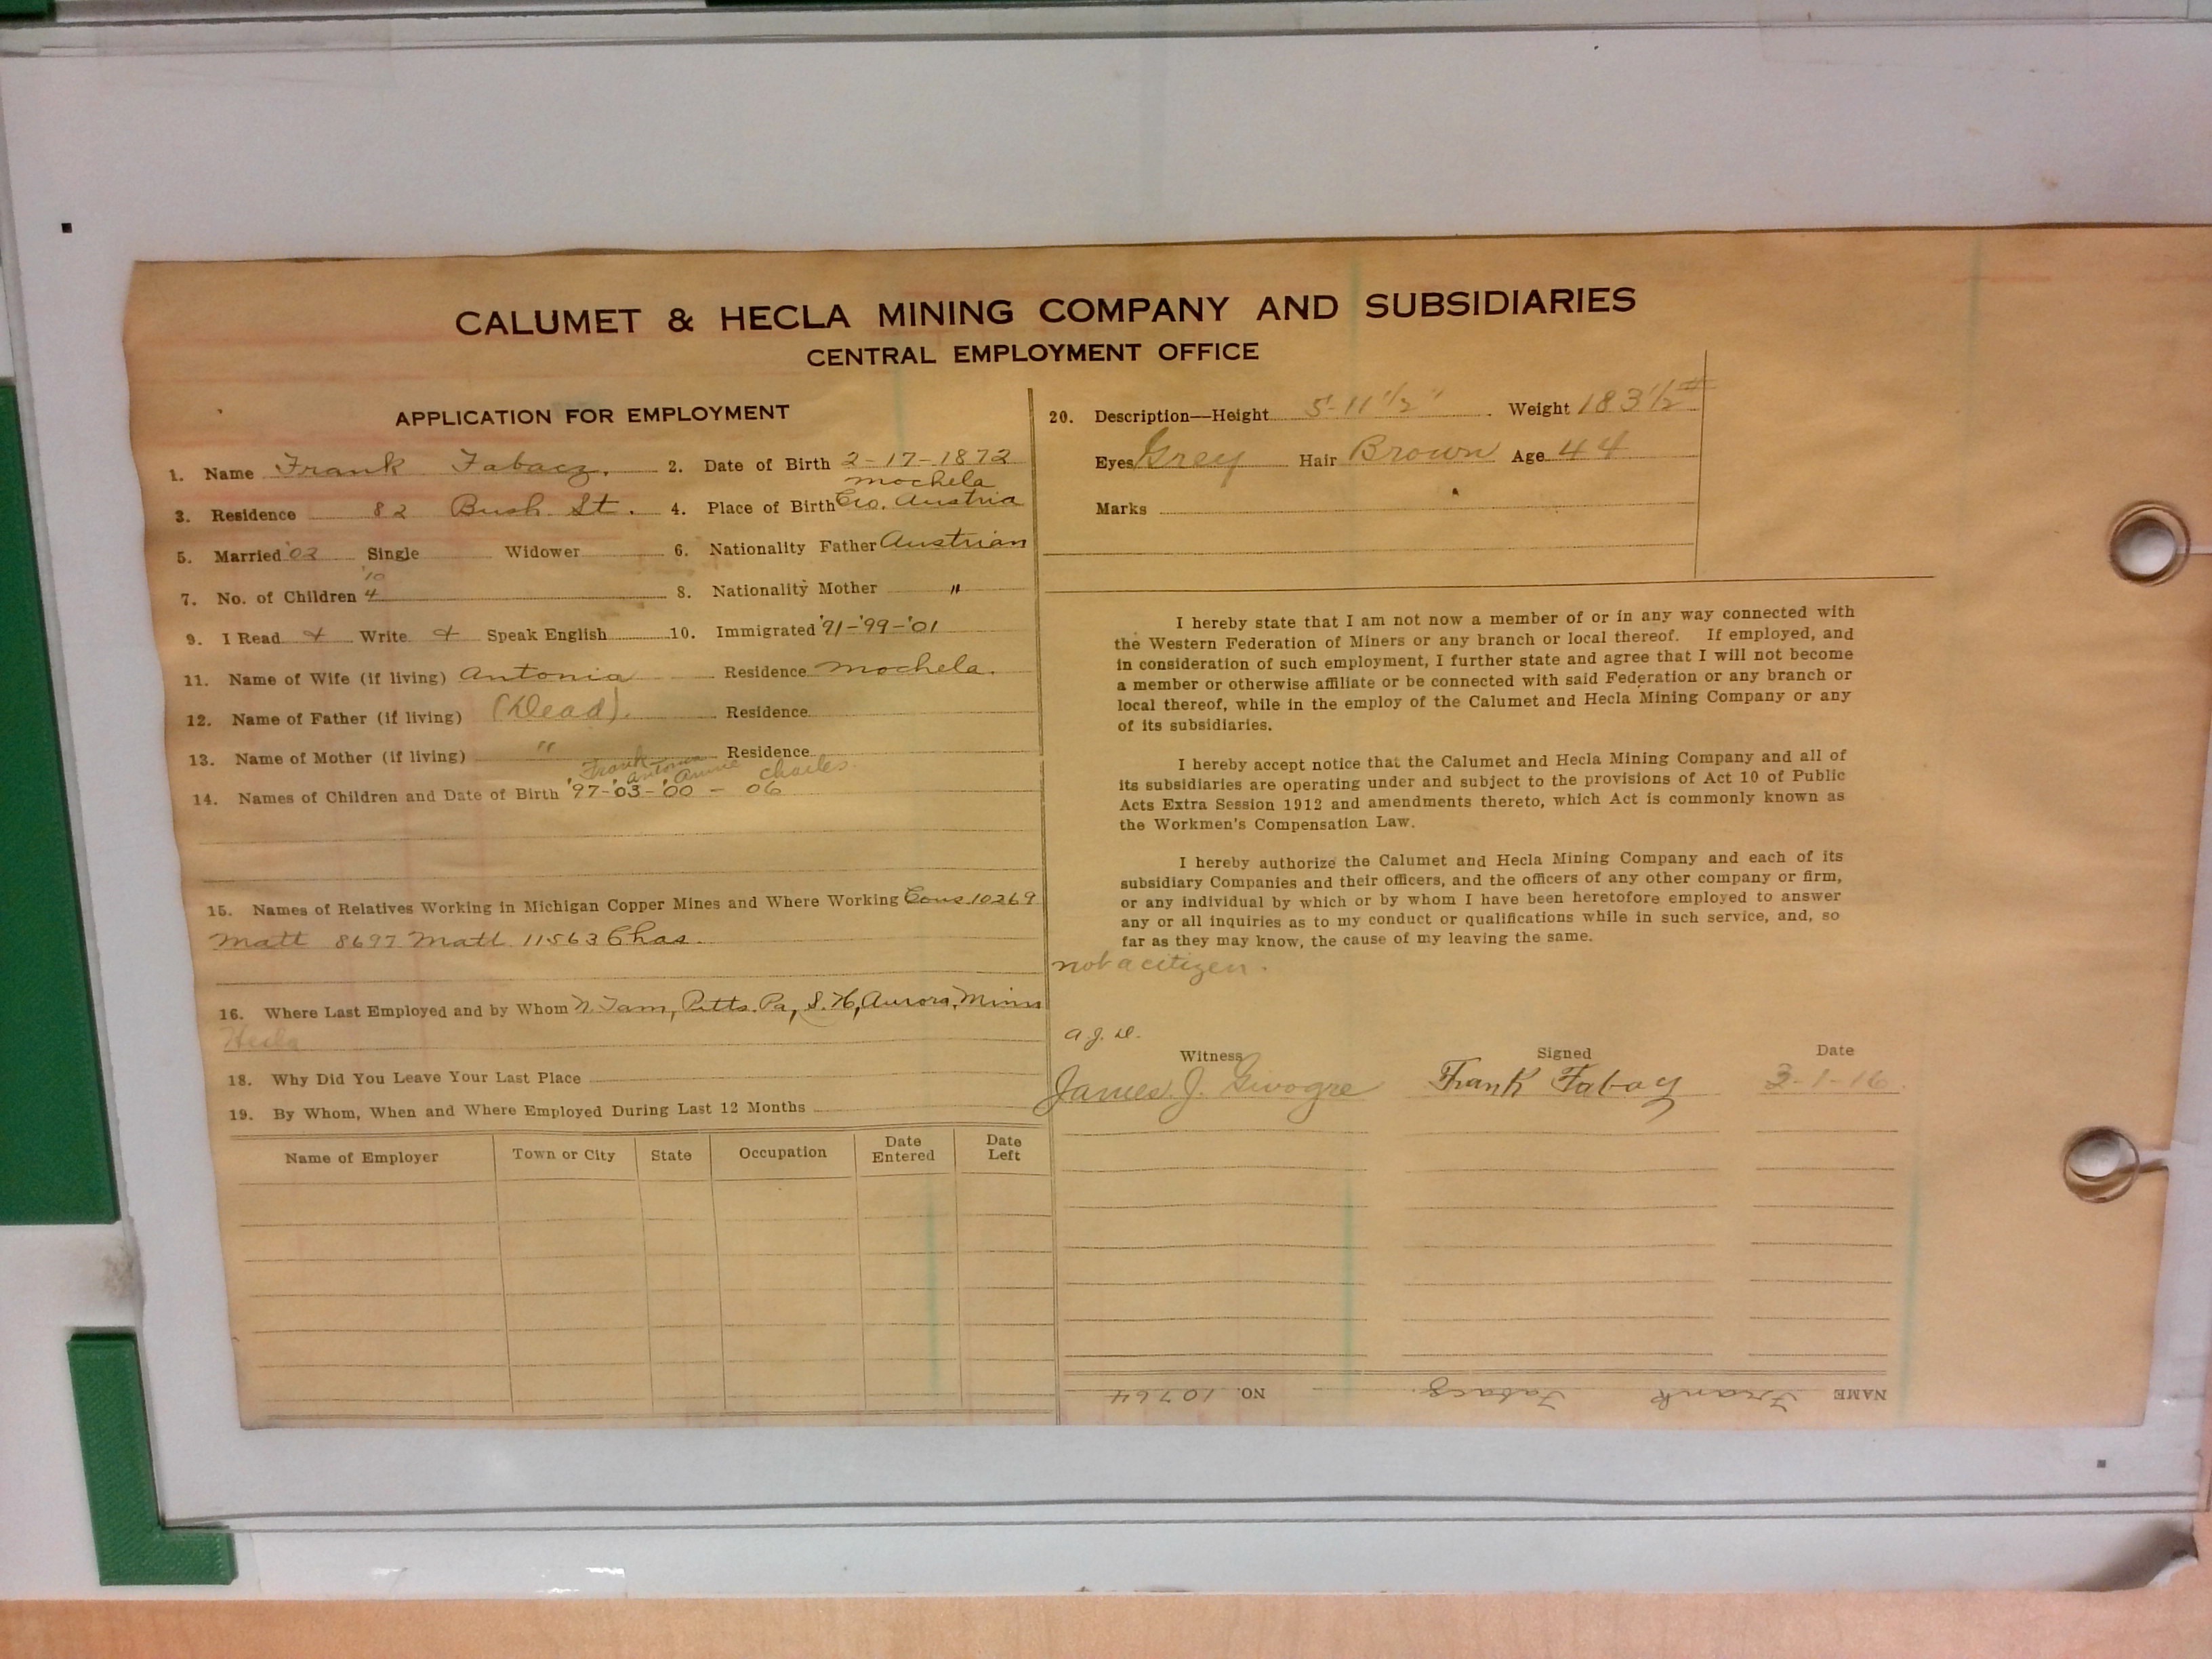 CALUMET & HECLA MINING COMPANY AND SUBSIDIARIES
CENTRAL EMPLOYMENT OFFICE
APPLICATION FOR EMPLOYMENT
1. Name Frank Fabacz. 2. Date of Birth 2-17-1872
mochela
3. Residence 82 Bush St. 4. Place of Birth Cro. Austria
5. Married '02 Single Widower 6. Nationality Father Austrian
'10
7. No. of Children 4 8. Nationality Mother "
9. I Read Write Speak English 10. Immigrated '91-'99-'01
11. Name of Wife (if living) Antonia Residence mochela.
12. Name of Father (if living) (Dead). Residence
13. Name of Mother (if living) " Residence
Frank Antonia Annie Charles
14. Names of Children and Date of Birth '97-'03-'00 - 06
15. Names of Relatives Working in Michigan Copper Mines and Where Working Cous 10269
Matt 8697 Matt 11563 Chas.
16. Where Last Employed and by Whom N. Tam, Pitts. Pa, S. H, Aurora, Minn
Hecla
18. Why Did You Leave Your Last Place
19. By Whom, When and Where Employed During Last 12 Months
Name of Employer Town or City State Occupation Date Entered Date Left
20. Description—Height 5-11 1/2" Weight 183 1/2 #
Eyes Grey Hair Brown Age 44
Marks
I hereby state that I am not now a member of or in any way connected with
the Western Federation of Miners or any branch or local thereof. If employed, and
in consideration of such employment, I further state and agree that I will not become
a member or otherwise affiliate or be connected with said Federation or any branch or
local thereof, while in the employ of the Calumet and Hecla Mining Company or any
of its subsidiaries.
I hereby accept notice that the Calumet and Hecla Mining Company and all of
its subsidiaries are operating under and subject to the provisions of Act 10 of Public
Acts Extra Session 1912 and amendments thereto, which Act is commonly known as
the Workmen's Compensation Law.
I hereby authorize the Calumet and Hecla Mining Company and each of its
subsidiary Companies and their officers, and the officers of any other company or firm,
or any individual by which or by whom I have been heretofore employed to answer
any or all inquiries as to my conduct or qualifications while in such service, and, so
far as they may know, the cause of my leaving the same.
not a citizen.
a.j.d.
Witness Signed Date
James J. Frank Fabacz 3-1-16
NAME Frank Fabacz. NO. 10764